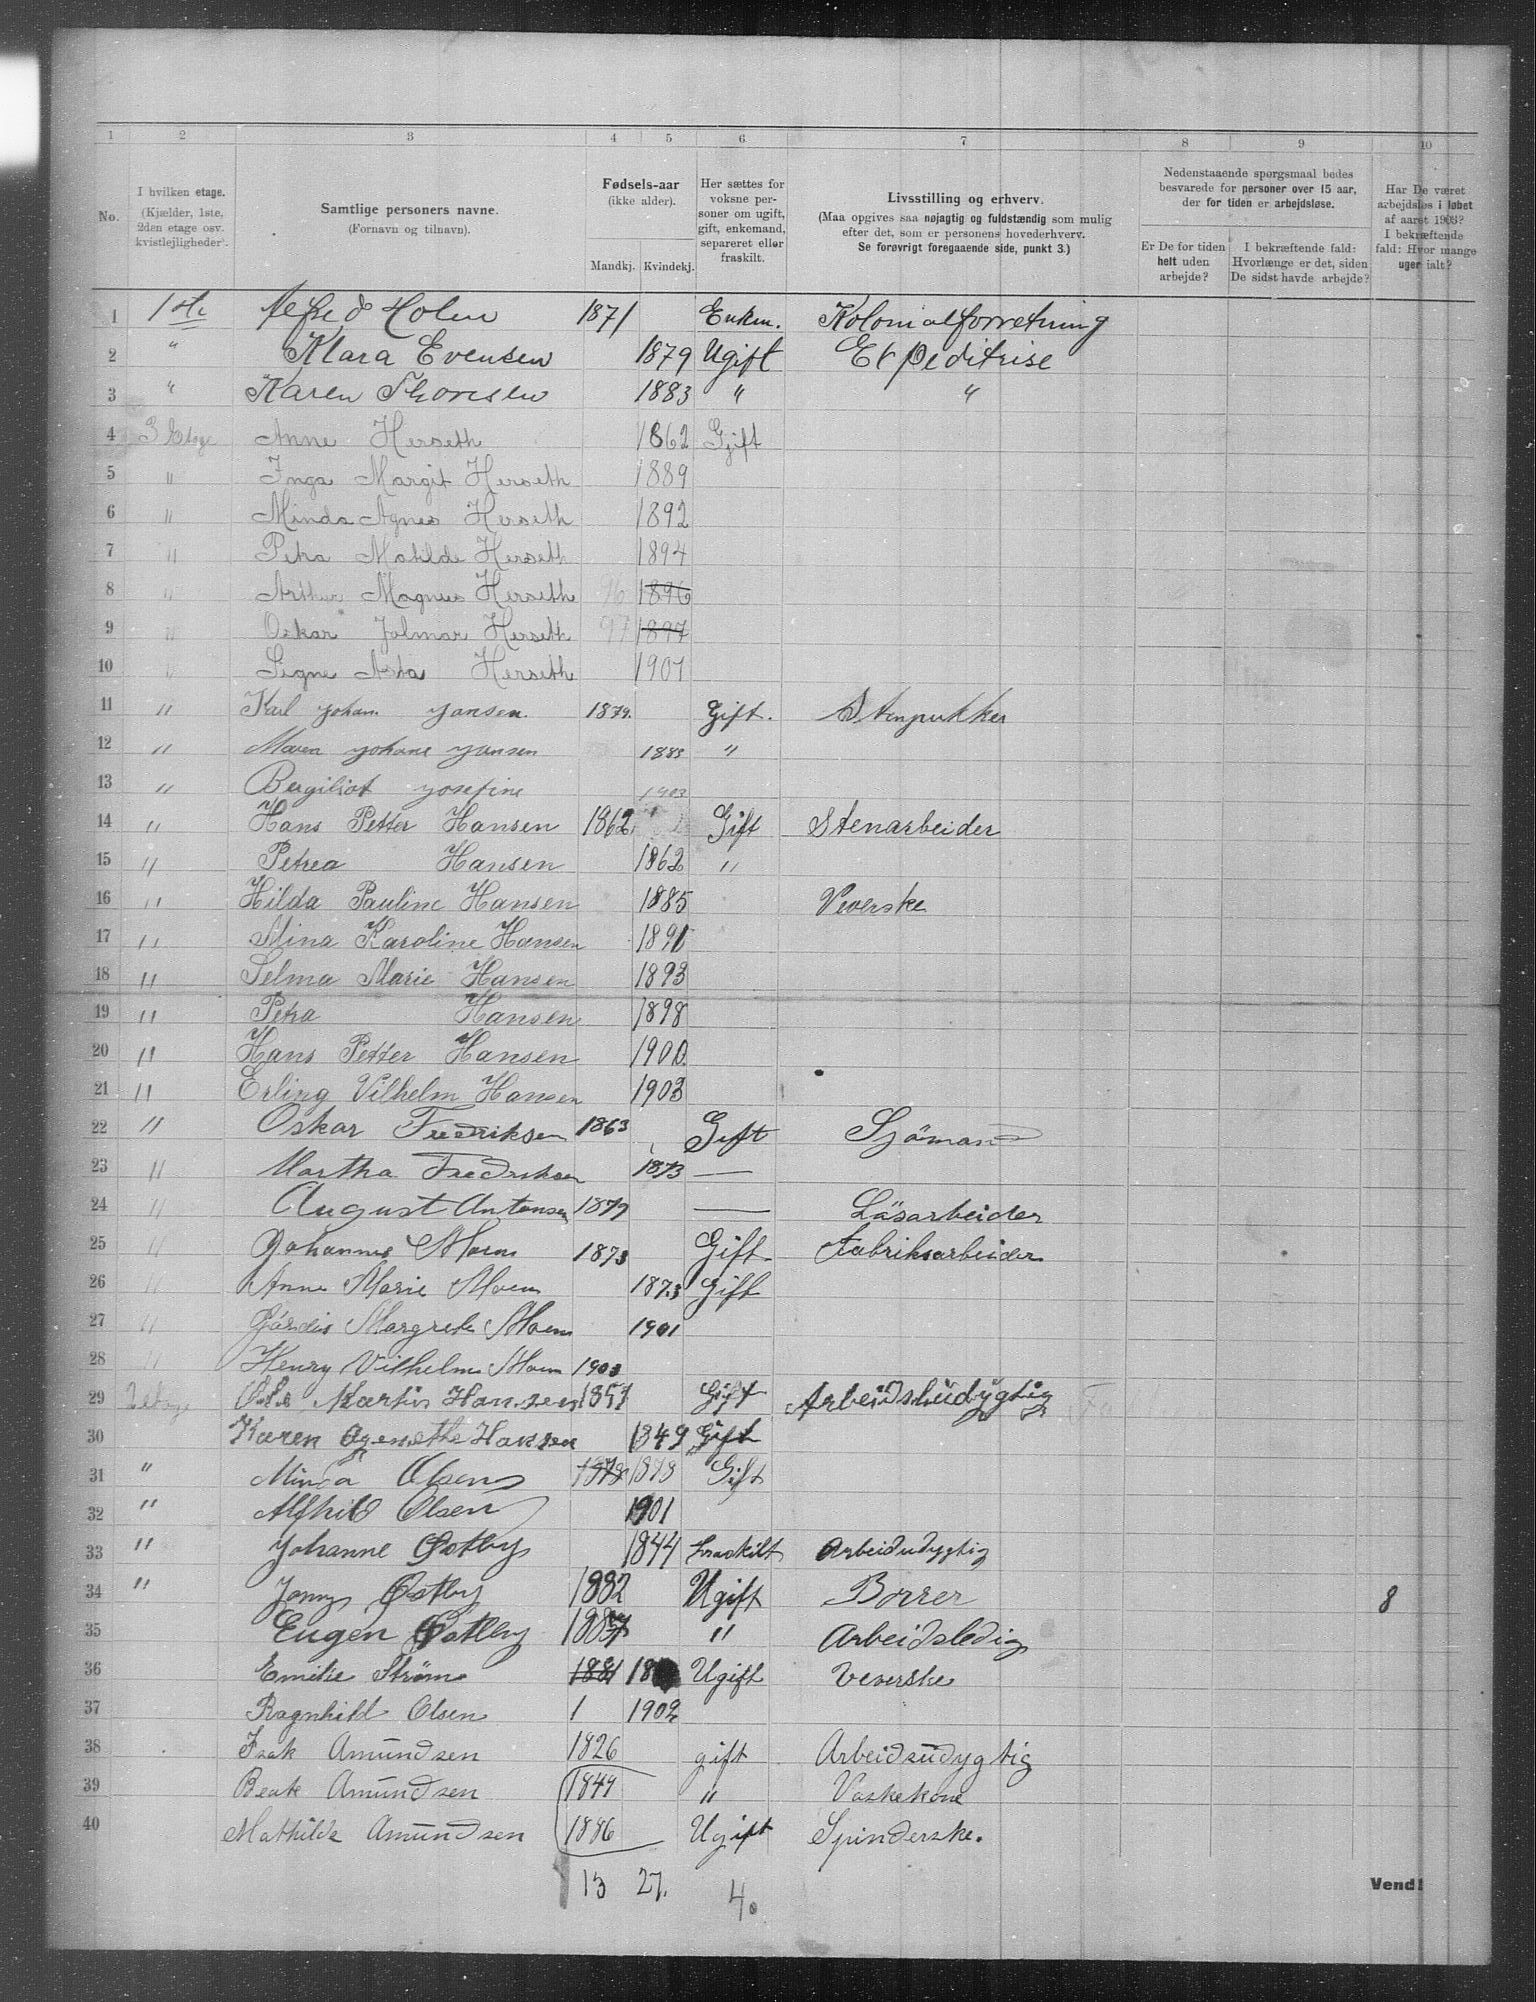 1 2 3 4 5 6 7 8 9 10
No.
I hvilken etage. (Kjælder, 1ste, 2den etage osv. kvistlejligheder).
Samtlige personers navne. (Fornavn og tilnavn).
Fødsels-aar (ikke alder).
Mandkj. Kvindekj.
Her sættes for voksne personer om ugift, gift, enkemand, separeret eller fraskilt.
Livsstilling og erhverv. (Maa opgives saa nøjagtig og fuldstændig som mulig efter det, som er personens hovederhverv. Se forøvrigt foregaaende side, punkt 3.)
Nedenstaaende spørgsmaal bedes besvarede for personer over 15 aar, der for tiden er arbejdsløse.
Er De for tiden helt uden arbejde?
I bekræftende fald: Hvorlænge er det, siden De sidst havde arbejde?
Har De været arbejdsløs i løbet af aaret 1903? I bekræftende fald: Hvor mange uger ialt?
1 1ste Alfred Holen 1871 Enkm. Kolonialforretning
2 " Klara Evensen 1879 Ugift Expeditrise
3 " Karen Thoresen 1883 " "
4 3 Etage Anne Herseth 1862 Gift
5 " Inga Margit Herseth 1889
6 " Minda Agnes Herseth 1892
7 " Petra Matilde Herseth 1894
8 " Arthur Magnus Herseth 96 1896
9 " Oskar Jalmar Herseth 97 1897
10 " Signe Asta Herseth 1901
11 " Karl Johan Jansen 1879. Gift. Stenpukker
12 " Maren Johane Jansen 1883 "
13 " Bergiliot Josefine 1903
14 " Hans Petter Hansen 1862 Gift Stenarbeider
15 " Petrea Hansen 1862 "
16 " Hilda Pauline Hansen 1885 Veverske
17 " Mina Karoline Hansen 1891
18 " Selma Marie Hansen 1893
19 " Petra Hansen 1898
20 " Hans Petter Hansen 1900
21 " Erling Vilhelm Hansen 1903
22 " Oskar Fredriksen 1863 Gift Sjömand
23 " Martha Fredriksen 1873 —
24 " August Antonsen 1879 — Läsarbeider
25 " Johannes Moen 1873 Gift Fabriksarbeider
26 " Anne Marie Moen 1873 Gift
27 " Gärdis Margrete Moen 1901
28 " Henry Vilhelm Moen 1903
29 2 etage Ole Martin Hansen 1857 Gift Arbeidshudygtig
30 Karen Agenethe Hansen 1849 Gift
31 " Minda Olsen 1878 1878 Gift
32 " Alfhild Olsen 1901
33 " Johanne Østby 1844 fraskilt Arbeidudygtig
34 " Jonny Østby 1882 Ugift Borrer 8
35 Eugen Østby 1887 " Arbeidsledig
36 Emilie Strøm 1881 18 Ugift Veverske
37 Ragnhild Olsen 1 1902
38 Isak Amundsen 1826 gift Arbeidsudygtig
39 Beate Amundsen 1849 " Vaskekone
40 Mathilde Amundsen 1886 Ugift Spinderske.
13 27. 4.
Vend!